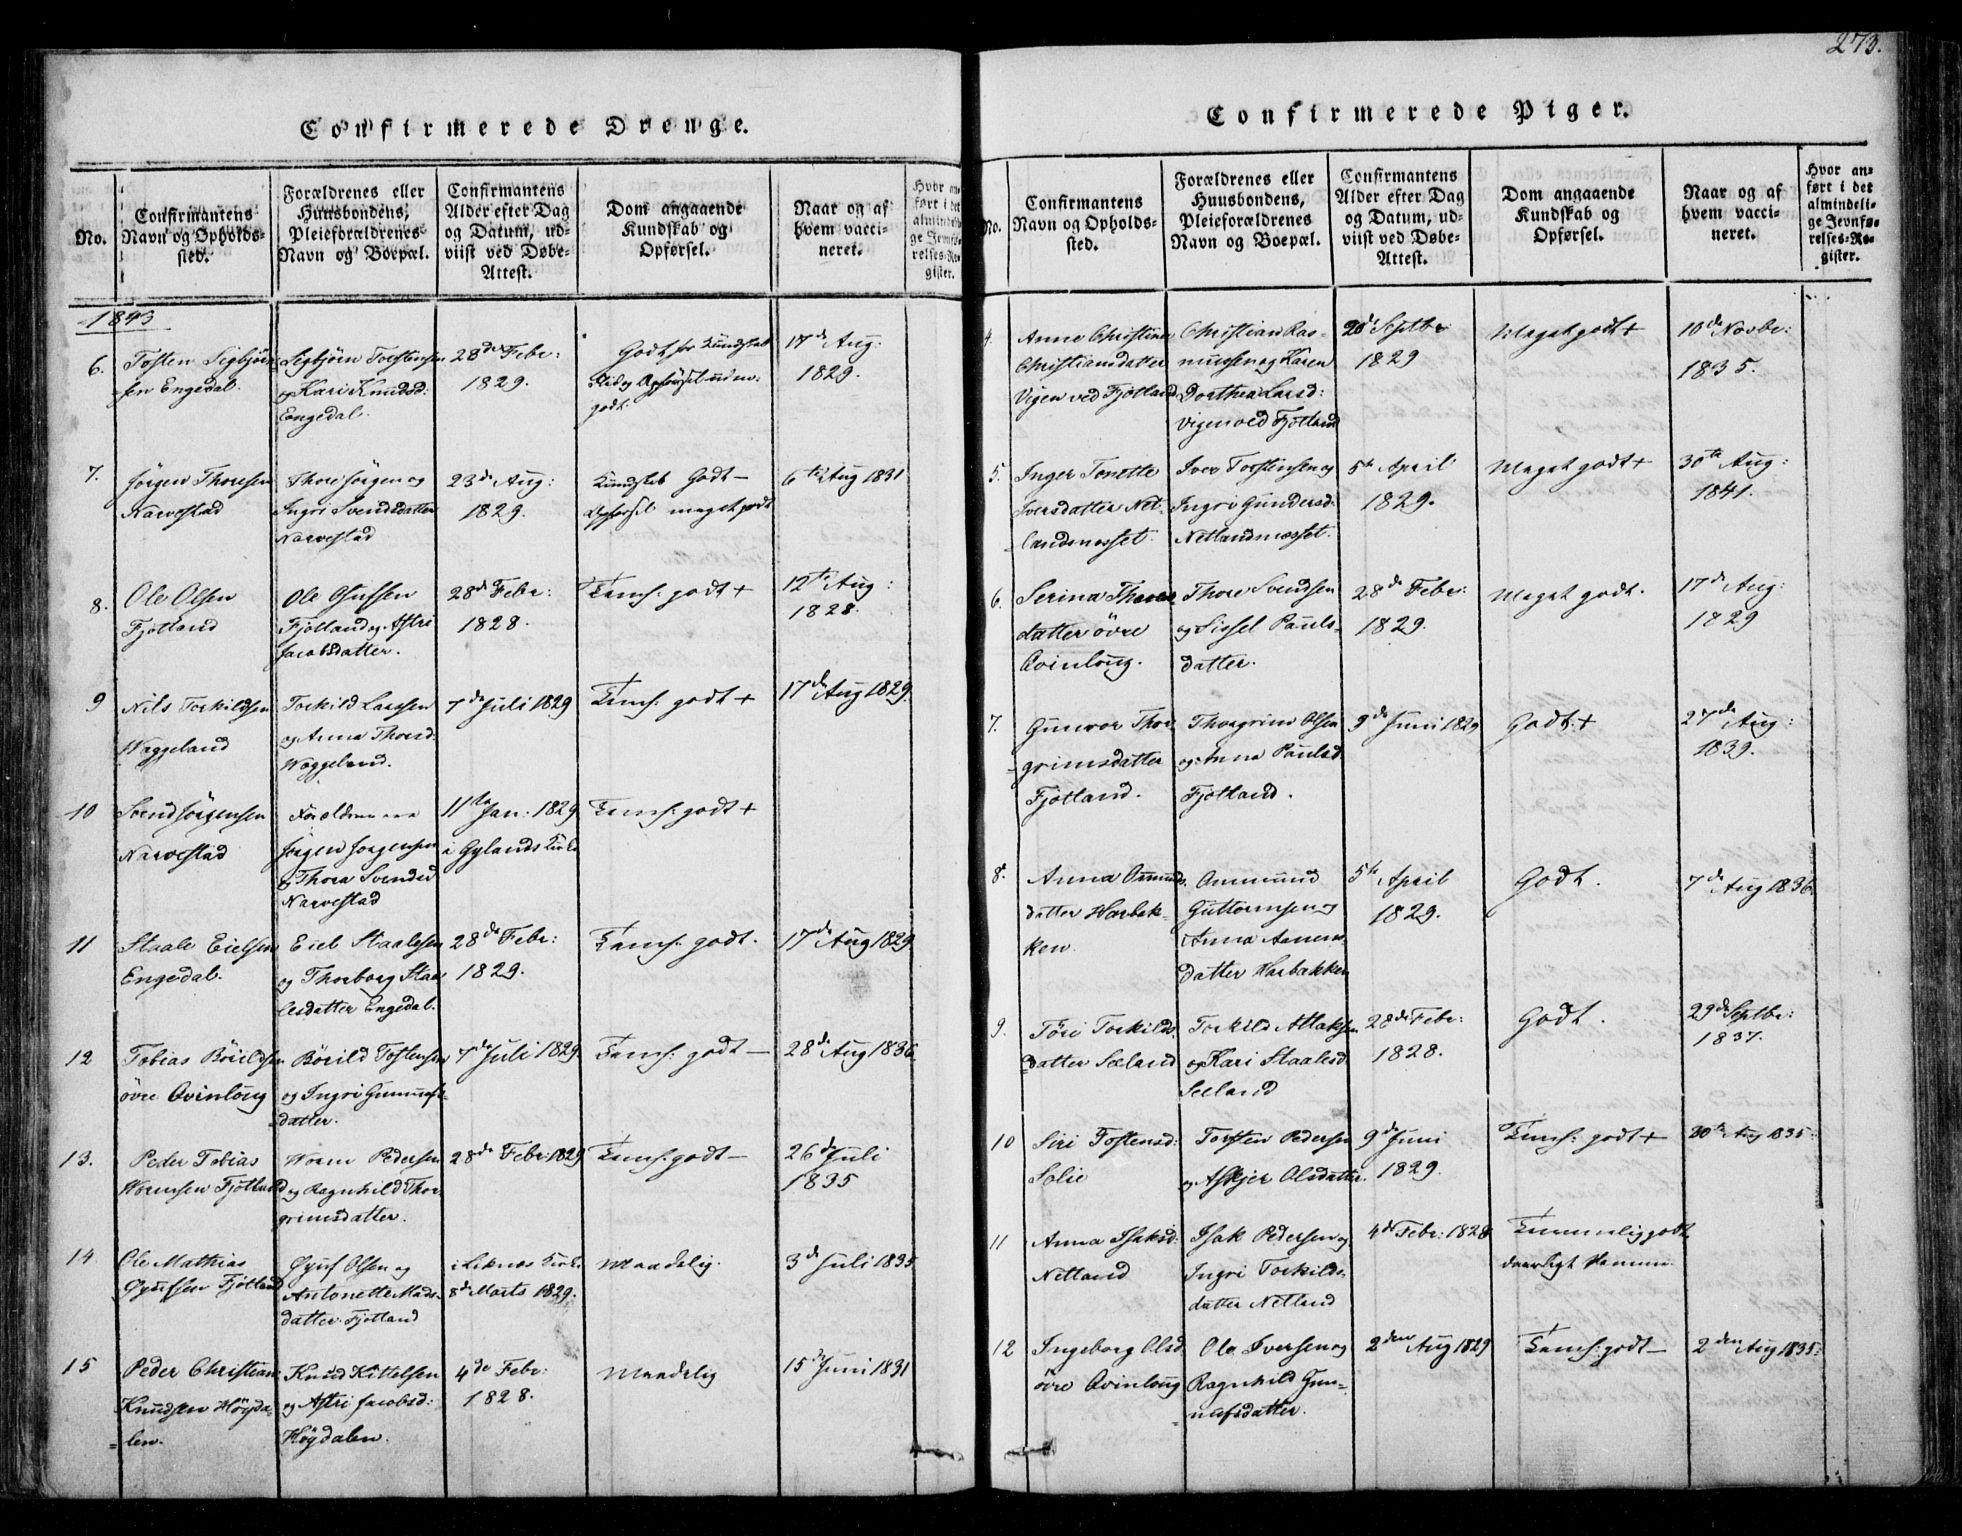 Confirmerede Drenge.
No.
Confirmantens
Navn og Opholds-
sted.
Forældrenes eller
Huusbondens,
Pleieforældrenes
Navn og Boepæl.
Confirmantens
Alder efter Dag
og Datum, ud-
viist ved Døbe-
Attest.
Dom angaaende
Kundskab og
Opførsel.
Naar og af
hvem vacci-
neret.
Hvor an-
ført i det
almindeli-
ge Jevnfø-
relses-Re-
gister.
1843
6.
Tosten Sigbjörn
sen Engedal.
Sigbjörn Torstensen
og Kari Knudsd:
Engedal.
28de Febr:
1829.
Godt for Kundskab
Flid og Opførsel
godt.
17de Aug:
1829.
7.
Jörgen Thoresen
Narvestad
Thore Jörgen og
Ingri Svendsdatter
Narvestad
23de Aug:
1829.
Kundskab Godt —
Opførsel meget godt
6te Aug 1831
8.
Ole Olsen
Fjotland
Ole Gufsen
Fjotland og Astri
Jacobsdatter.
28de Febr:
1828.
Tems: godt +
12te Aug:
1828.
9
Nils Torkildsen
Waggeland
Torkild Larssen
og Anna Thorsd.
Waggeland.
7de Juli 1829
Tems: godt +
17de Aug 1829.
10
Svend Jörgensen
Narvestad
Forældrene
Jörgen Jorgensen
og Thora Svendsd
Narvestad
11te Jan: 1829
i Gylands Kirke
Tems: godt +
11
Staale Eielsen
Engedal.
Eiel Staalesen
og Thorborg Staa
lesdatter Engedal.
28de Febr:
1829.
Tems: godt.
17de Aug 1829
12
Tobias Börildsen
övre Qvinlöug
Börild Tostensen
og Ingri Gunnufs-
datter.
7de Juli 1829.
Tems: godt —
28de Aug 1836.
13.
Peder Tobias
Wormsen Fjotland
Worm Pedersen
og Ragnhild Thor
grimsdatter.
28de Febr: 1829
Tems: godt —
26de Juli
1835
14
Ole Mathias
Gyufsen Fjotland
Gyuf Olsen og
Antonette Mads-
datter. Fjotland
i Liknes Kirke
8de Marts 1829.
Maadelig.
3de Juli 1835
15
Peder Christian
Knudsen Höyda-
len.
Knud Kittelsen
og Astri Jacobsd:
Höydalen.
4de Febr:
1828.
Maadelig
15de Juni 1831
273.
Confirmerede Piger.
No.
Confirmantens
Navn og Opholds-
sted.
Forældrenes eller
Huusbondens,
Pleieforældrenes
Navn og Boepæl.
Confirmantens
Alder efter Dag
og Datum, ud-
viist ved Døbe-
Attest.
Dom angaaende
Kundskab og
Opførsel.
Naar og af
hvem vacci-
neret.
Hvor an-
ført i det
almindeli-
ge Jevnfø-
relses-Re-
gister.
4.
Anne Christine
Christiansdatter
Vigen ved Fjotland
Christian Ras-
mussen og Karen
Dorthea Larsd:
Vigen ved Fjotland
20de Septbr
1829
Meget godt +
10de Novbr:
1835.
5.
Inger Tonette
Iversdatter Net-
landsmosset.
Iver Torstensen og
Ingri Gundersd:
Netlandmosset.
5te April
1829.
Meget godt +
30te Aug:
1841.
6.
Serina Thores
datter övre
Qvinloug.
Thore Svendsen
og Sissel Pauls-
datter.
28de Febr:
1829.
Meget godt.
17de Aug:
1829
7.
Gunvor Thor-
grimsdatter
Fjotland.
Thorgrim Olsen
og Anna Paulsd.
Fjotland.
9de Juni 1829
Godt +
27de Aug:
1839.
8.
Anna Omunds
datter Harbak-
ken.
Ommund
Guttormsen og
Anna Aanens-
datter Harbakken
5te April
1829.
Godt.
7de Aug 1836
9.
Töri Torkilds
datter Sæland
Torkild Atlaksen
og Kari Staalesd
Seeland
28de Febr:
1828.
Godt.
29de Septbr:
1837.
10
Siri Tostensd:
Solie
Torsten Pedersen
og Askjer Olsdatter.
9de Juni
1829.
Tems: godt +
30te Aug 1835:
11
Anna Isaksd:
Netland
Isak Pedersen og
Ingri Torkilds-
datter Netland
4de Febr: 1828
Temmelig godt
daarligt Nemme.
12
Ingeborg Olsd
övre Qvinloug
Ole Iversen og
Ragnhild Gun-
nufsdatter.
2den Aug 1829
Tems: godt —
2den Aug 1835: